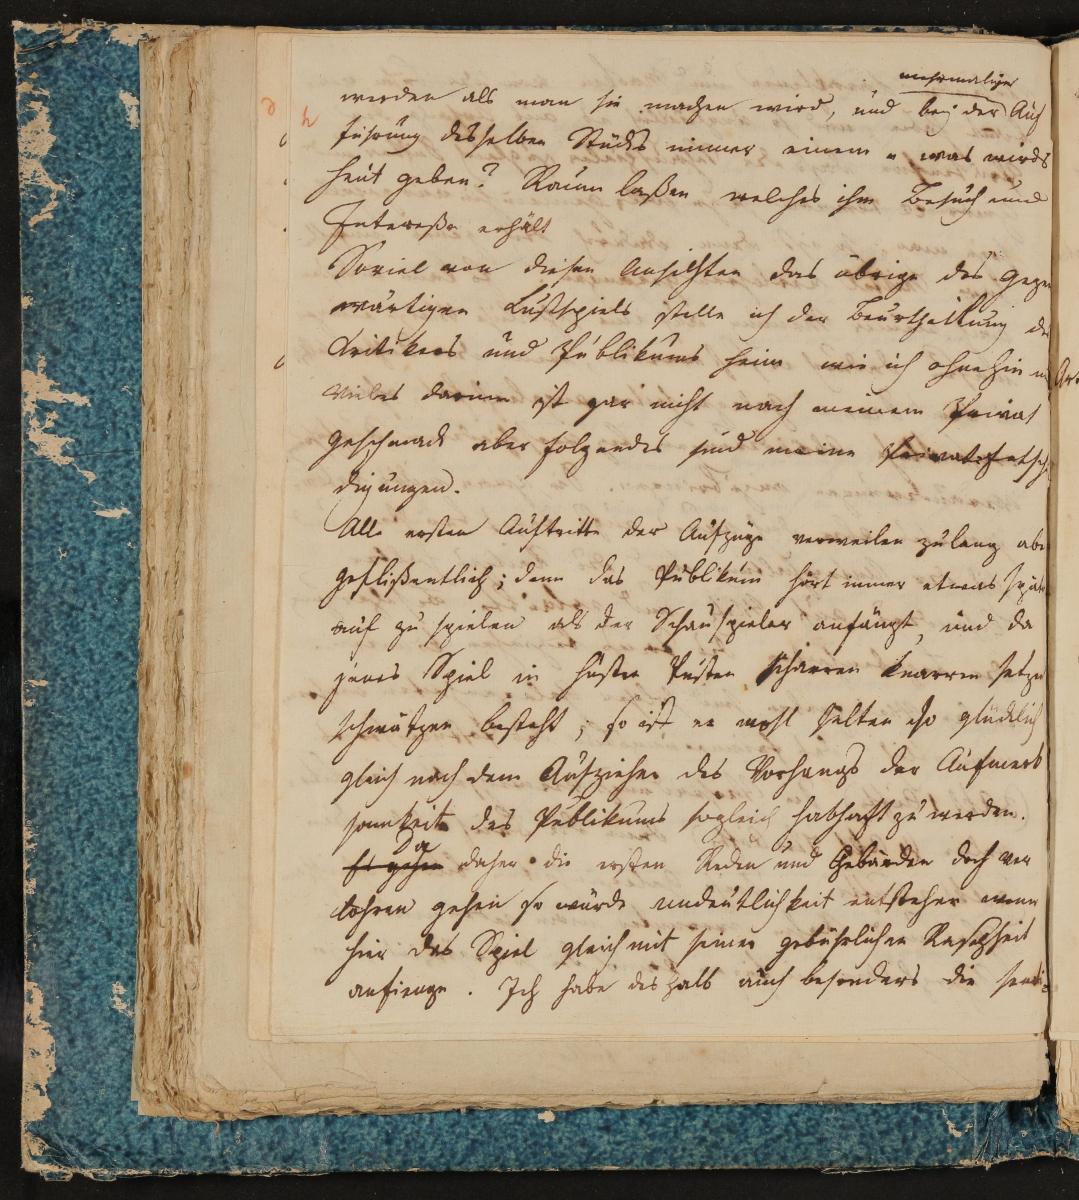 mehrmaliger
werden als man sie machen wird, und bej der Auf
führung desselben Stücks immer einem „ was wirds
heut geben? Raum laßen welches ihm Besuch und
Intereße erhält
Soviel von diesen Ansichten das übrige des gegen
wärtigen Lustspiels stelle ich der Beurtheilung des
Critikers und Publikums heim wie ich ohnehin
vieles darinn ist gar nicht nach meinem Privat
geschmack aber folgendes sind meine
digungen.
Alle ersten Auftritte der Aufzüge verweilen zulang aber
geflißentlich; denn das Publikum hört immer etwas später
auf zu spielen als der Schauspieler anfängt, und da
jenes Spiel in Husten Pusten scharren knarren
schwätzen besteht; so ist er wohl selten so glücklich
gleich nach dem Aufziehen des Vorhangs der Aufmerk
samkeit des Publikums sogleich habhaft zu werden.
Da
daher die ersten Reden und Gebärden doch ver
lohren gehen so würde undeutlichkeit entstehen wenn
hier das Spiel gleich mit seiner gebührlichen Raschheit
anfienge. Ich habe deshalb auch besonders die